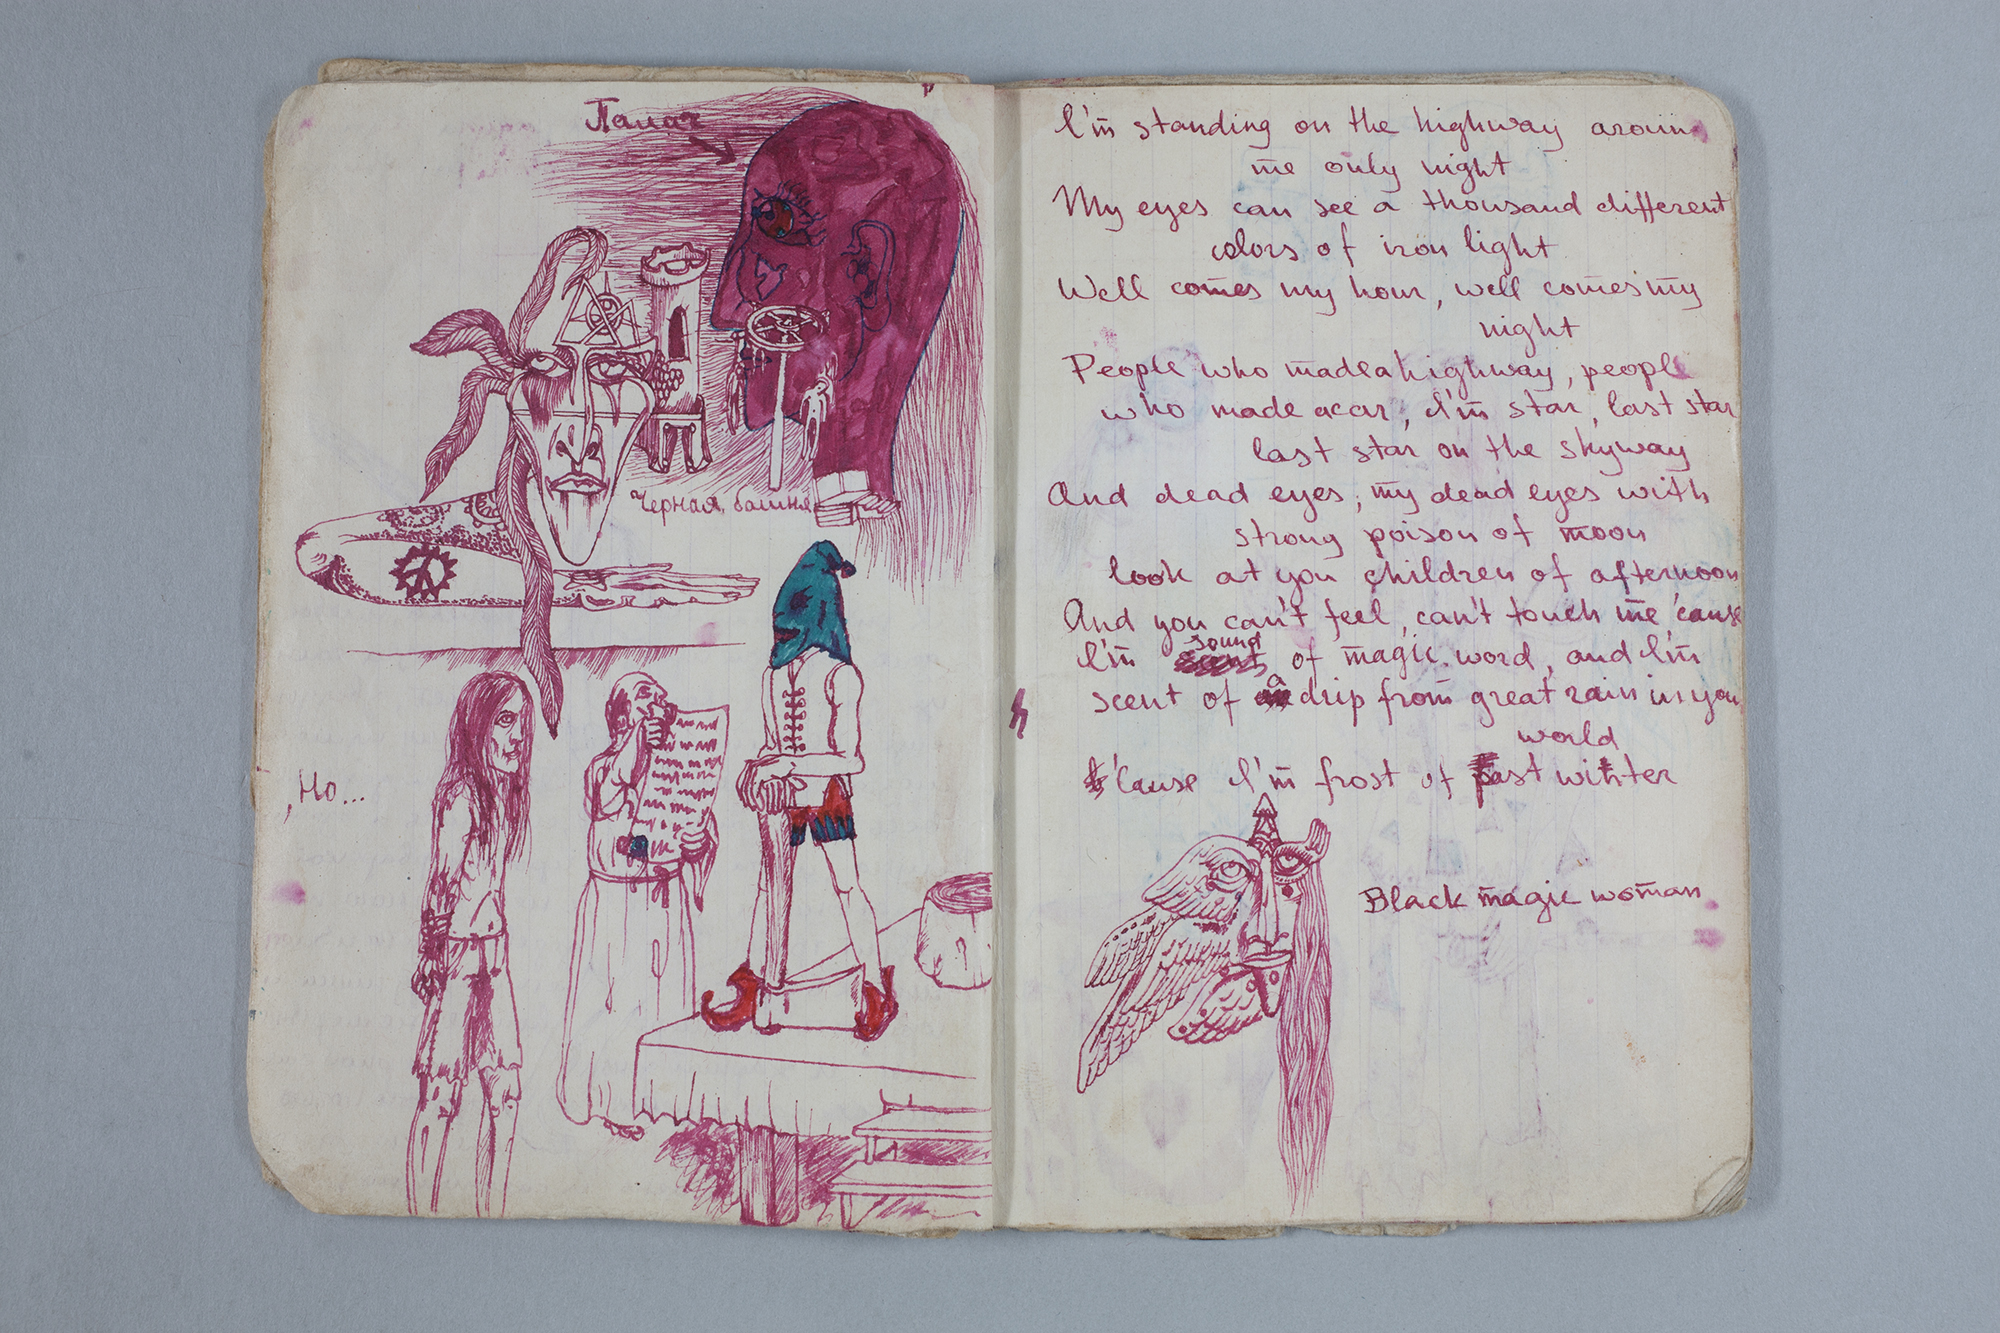 Палач
Черная башня
, Но...
I'm standing on the highway aroun
me only night
My eyes can see a thousand different
colors of iron light
Well comes my hour, well comes my
night
People who made a highway, people
who made a car, I'm star, last star
last star on the skyway
And dead eyes, my dead eyes with
strong poison of moon
look at you children of afternoon
And you can't feel, can't touch me 'cause
I'm sound of magic word, and I'm
scent of a drip from great rain in you
world
'cause I'm frost of past winter
Black magic woman